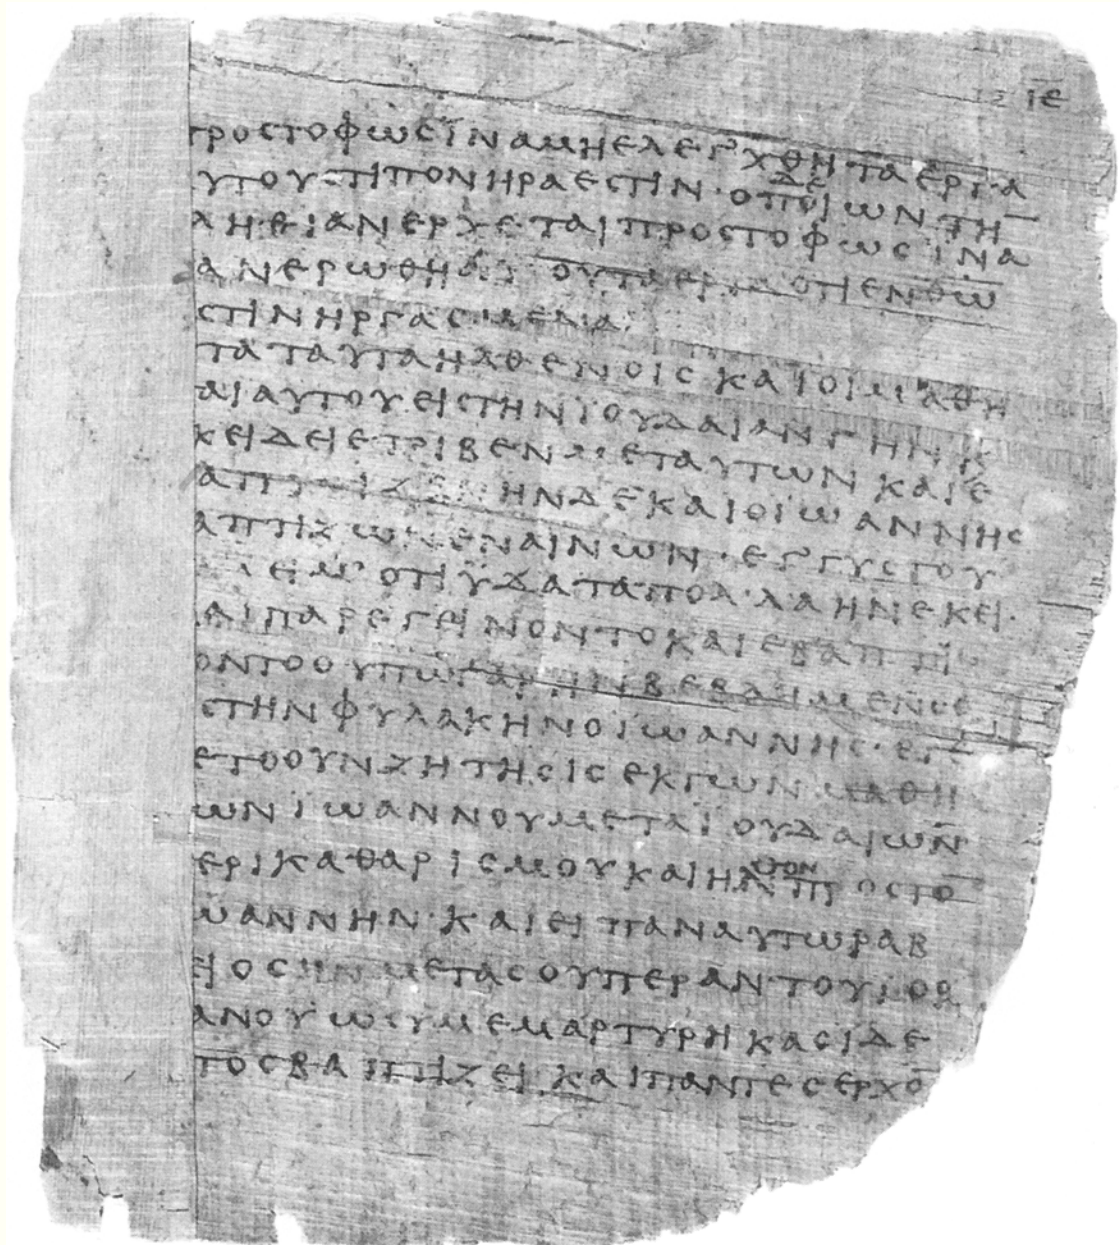 ΙΕ
ΠΡΟΣΤΟΦΩΣΪΝΑΜΗΕΛΕΓΧΘΗΤΑΕΡΓΑ
ΥΤΟΥΟΤΙΠΟΝΗΡΑΕΣΤΙΝ·ΟΔΕΠΟΙΩΝΤΗ̅
ΑΛΗΘΕΙΑΝΕΡΧΕΤΑΙΠΡΟΣΤΟΦΩΣΪΝΑ
ΑΝΕΡΩΘΗΑΥΤΟΥΤΑΕΡΓΑΟΤΙΕΝΘΩ
ΣΤΙΝΗΡΓΑΣΜΕΝΑ
ΤΑΤΑΥΤΑΗΛΘΕΝΟΙΣΚΑΙΟΙΜΑΘΗ
ΑΙΑΥΤΟΥΕΙΣΤΗΝΪΟΥΔΑΙΑΝΓΗΝΚ
ΚΕΙΔΙΕΤΡΙΒΕΝΜΕΤΑΥΤΩΝΚΑΙΕ
ΑΠΤΙΖΕΝΗΝΔΕΚΑΙΟΪΩΑΝΝΗΣ
ΑΠΤΙΖΩΝΕΝΑΙΝΩΝ·ΕΓΓΥΣΤΟΥ
ΛΕΙΜ'ΟΤΙΫΔΑΤΑΠΟΛ'ΛΑΗΝΕΚΕΙ·
ΑΙΠΑΡΕΓΕΙΝΟΝΤΟΚΑΙΕΒΑΠΤΙ
ΟΝΤΟΟΥΠΩΓΑΡΗΝΒΕΒΛΗΜΕΝΟΣ
ΣΤΗΝΦΥΛΑΚΗΝΟΪΩΑΝΝΗΣ·ΕΓΕ
ΕΤΟΟΥΝΖΗΤΗΣΙΣΕΚΤΩΝΜΑΘΗ
ΩΝΪΩΑΝΝΟΥΜΕΤΑΪΟΥΔΑΙΩΝ
ΕΡΙΚΑΘΑΡΙΣΜΟΥΚΑΙΗΛΘΟΝΠΡΟΣΤΟ̅
ΩΑΝΝΗΝ·ΚΑΙΕΙΠΑΝΑΥΤΩΡΑΒ
ΕΙΟΣΗΝΜΕΤΑΣΟΥΠΕΡΑΝΤΟΥΪΟΡ
ΑΝΟΥΩΣΥΜΕΜΑΡΤΥΡΗΚΑΣΙΔΕ
ΤΟΣΒΑΠΤΙΖΕΙΚΑΙΠΑΝΤΕΣΕΡΧΟ